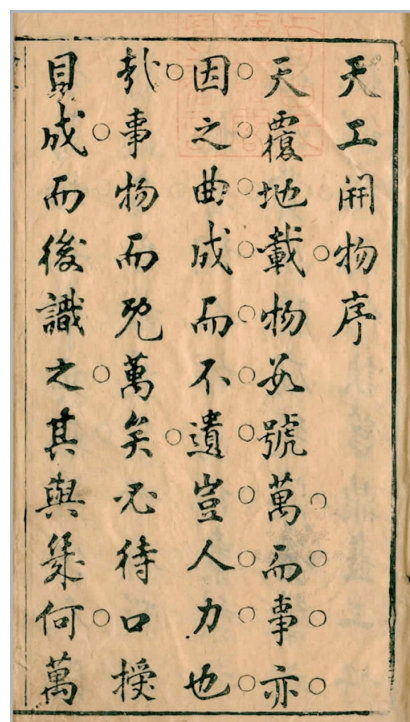 天工開物序
天覆地載物数號萬而事亦
因之曲成而不遺豈人力也
㢤事物而既萬矣必待口授
目成而後識之其與幾何萬